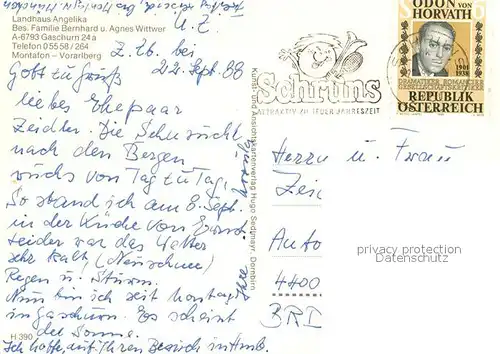 Landhaus Angelika
Bes. Familie Bernhard u. Agnes Wittwer
A-6793 Gaschurn 24 a
Telefon 0 55 58 / 264
Montafon - Vorarlberg
Z. Zt. bei
22. Sept. 88
Gott zu Grüß
liebes Ehepaar
Zeidler. Die Sehnsucht
nach den Bergen
wuchs von Tag zu Tag!
So stand ich am 8. Sept.
in der Küche von
leider war das Wetter
sehr kalt (Neuschnee)
Regen u. Sturm.
Nun bin ich seit Montags
in Gaschurn. Es scheint
die Sonne.
Ich hoffe, auf Ihren Besuch in
H 390
Kunst- und Ansichtskartenverlag Hugo Sedlmayr, Dornbirn
Schruns
ATTRAKTIV ZU JEDER JAHRESZEIT
ÖDÖN VON
HORVATH
1901
1938
DRAMATIKER ROMANCIER
GESELLSCHAFTSKRITIKER
REPUBLIK
ÖSTERREICH
Herrn u. Frau
Zei
Auto
4400
BRD
privacy protection
Datenschutz